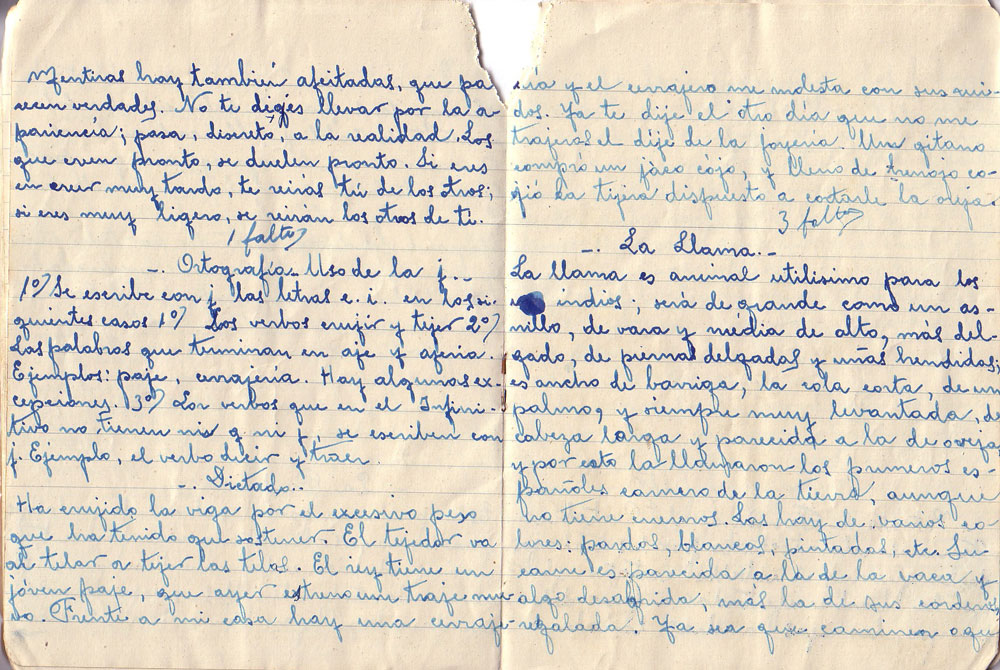 Mentiras hay también afeitadas, que pa
recen verdades. No te digés llevar por la a
pariencia; pasa, discretó, a la realidad. Los
que creen pronto, se duelen pronto. Si eres
en creer muy tardo, te reirás tú de los otros;
si eres muy ligero, se reirán los otros de ti.
1 falta
-. Ortografía. Uso de la j. -
1º) Se escribe con j las letras e. i. en los si-
guientes casos 1º) Los verbos crujir y tejer 2º)
Las palabras que terminan en aje y ajeria.
Ejemplos: paje, cerrajería. Hay algunas ex-
cepciones. 3º) Los verbos que en el Infini-
tivo no tienen ni g ni j, se escriben con
j. Ejemplo, el verbo decir y traer.
-. Dictado..
Ha crujido la viga por el excesivo peso
que ha tenido que sostener. El tejedor va
al telar a tejer las telas. El rey tiene un
jóven paje, que ayer estreno un traje nue
vo. Frente a mi casa hay una cerraje
ria y el cerrajero me molesta con sus rui-
dos. Ya te dije el otro día que no me
trajeras el dije de la joyería. Un gitano
compró un jaco cójo, y lleno de enojo co-
jió la tijera dispuesto a cortarle la oreja.
3 faltas
-. La Llama. -
La llama es animal utilisimo para los
indios; será de grande como un as-
nillo, de vara y média de alto, más del-
gado, de piernas delgadas y uñas hendidas;
es ancho de barriga, la cola corta, de un
palmo, y siempre muy levantada, de
cabeza larga y parecida a la de oveja,
y por esto la llamaron los primeros es-
pañoles carnero de la tierra, aunque
no tiene cuernos. Las hay de varios co-
lores: pardas, blancas, pintadas, etc. Su
carne es parecida a la de la vaca y
algo desabrida, más la de sus corderos
regalada. Ya sea que caminen o que